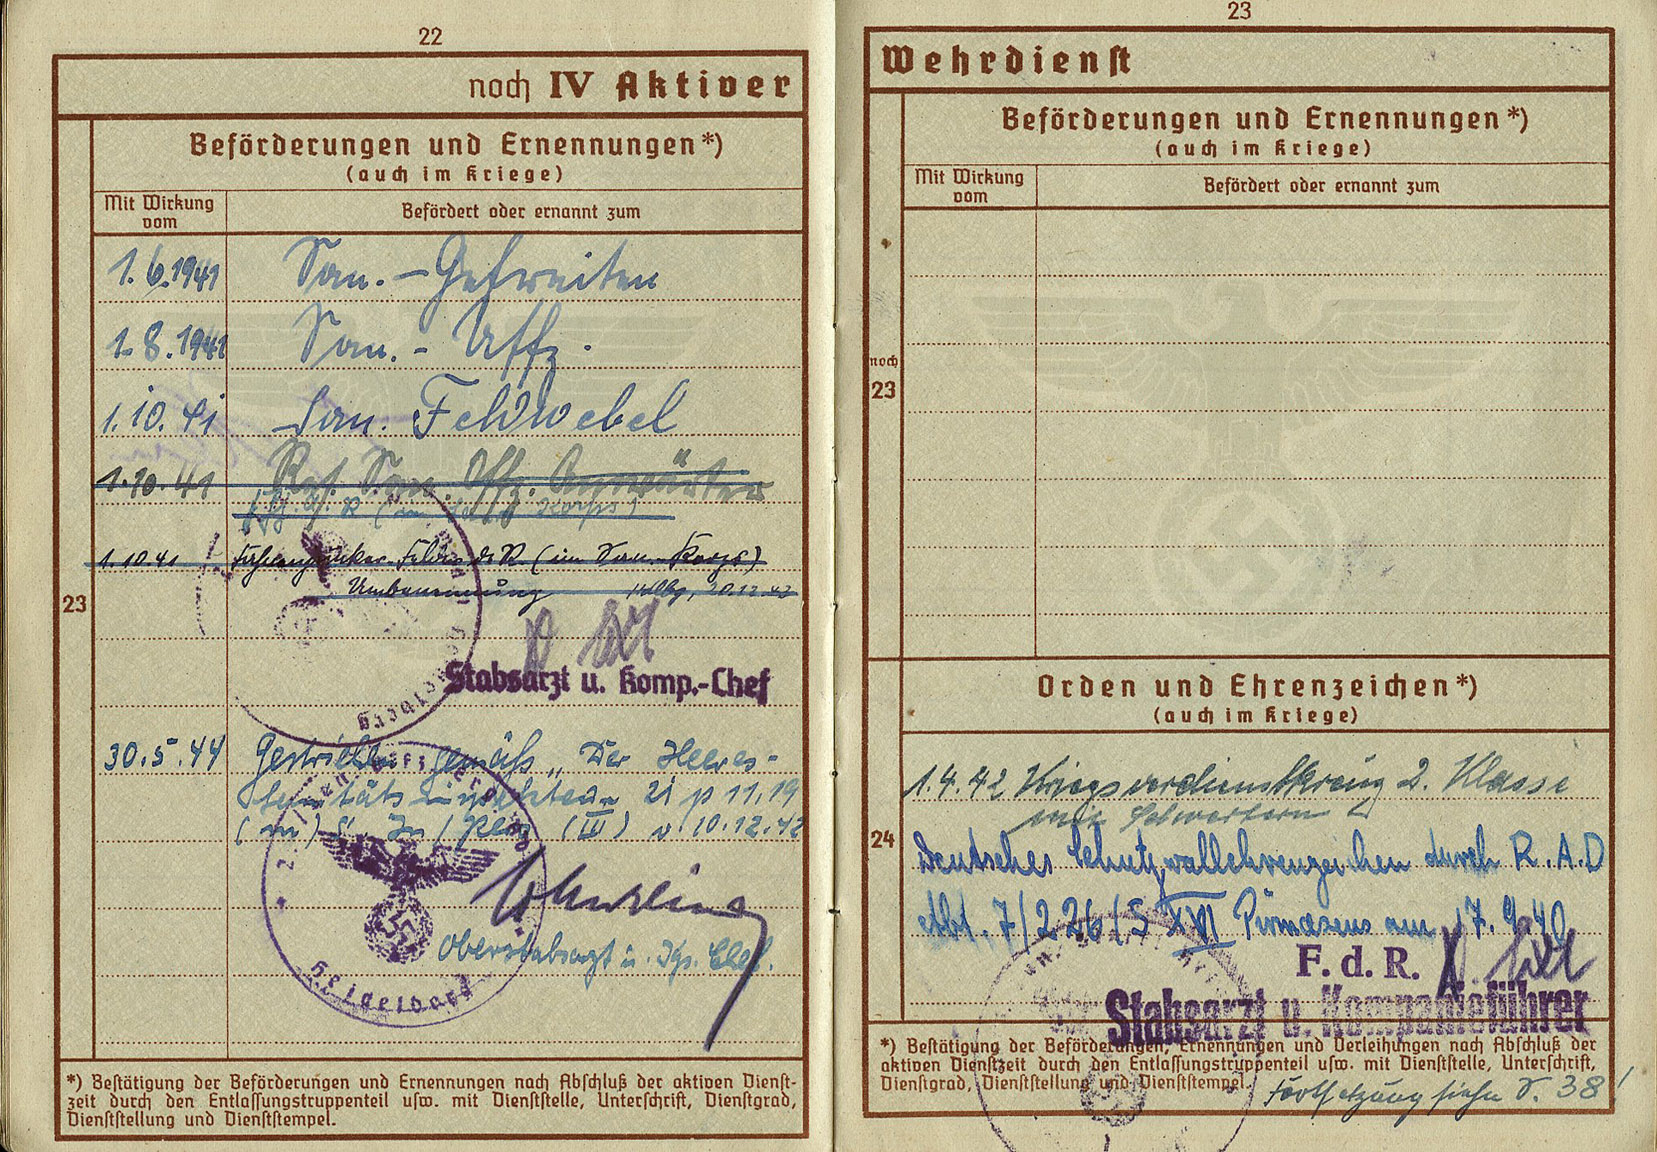 22
noch IV Aktiver
Beförderungen und Ernennungen*)
(auch im Kriege)
Mit Wirkung vom
Befördert oder ernannt zum
1.6.1941 San. - Gefreiten
1.8.1941 San. - Uffz.
1.10.41 San. Feldwebel
1.10.41 Res. San. Offz. Anwärter
(im San. Korps)
1.10.41 Fahnenjunker-Feldw. d. R. (im San. Korps)
Umbenennung 20.12.43
23
Stabsarzt u. Komp.-Chef
30.5.44 Gestrichen gemäß „Der Heeres-
Sanitätsinspekteur 21 p 11.19
(III) v. 10.12.42
Heidelberg
Oberstabsarzt u. Kp. Chef.
*) Bestätigung der Beförderungen und Ernennungen nach Abschluß der aktiven Dienst-
zeit durch den Entlassungstruppenteil usw. mit Dienststelle, Unterschrift, Dienstgrad,
Dienststellung und Dienststempel.
23
Wehrdienst
Beförderungen und Ernennungen*)
(auch im Kriege)
Mit Wirkung vom
Befördert oder ernannt zum
noch
23
Orden und Ehrenzeichen*)
(auch im Kriege)
1.4.42 Kriegsverdienstkreuz 2. Klasse
mit Schwertern
24
Deutsches Schutzwallehrenzeichen durch R.A.D
Abt. 7/226/5 XVI Pirmasens am 17.9.40
F. d. R.
Stabsarzt u. Kompanieführer
*) Bestätigung der Beförderungen, Ernennungen und Verleihungen nach Abschluß der
aktiven Dienstzeit durch den Entlassungstruppenteil usw. mit Dienststelle, Unterschrift,
Dienstgrad, Dienststellung und Dienststempel.
Fortsetzung siehe S. 38!